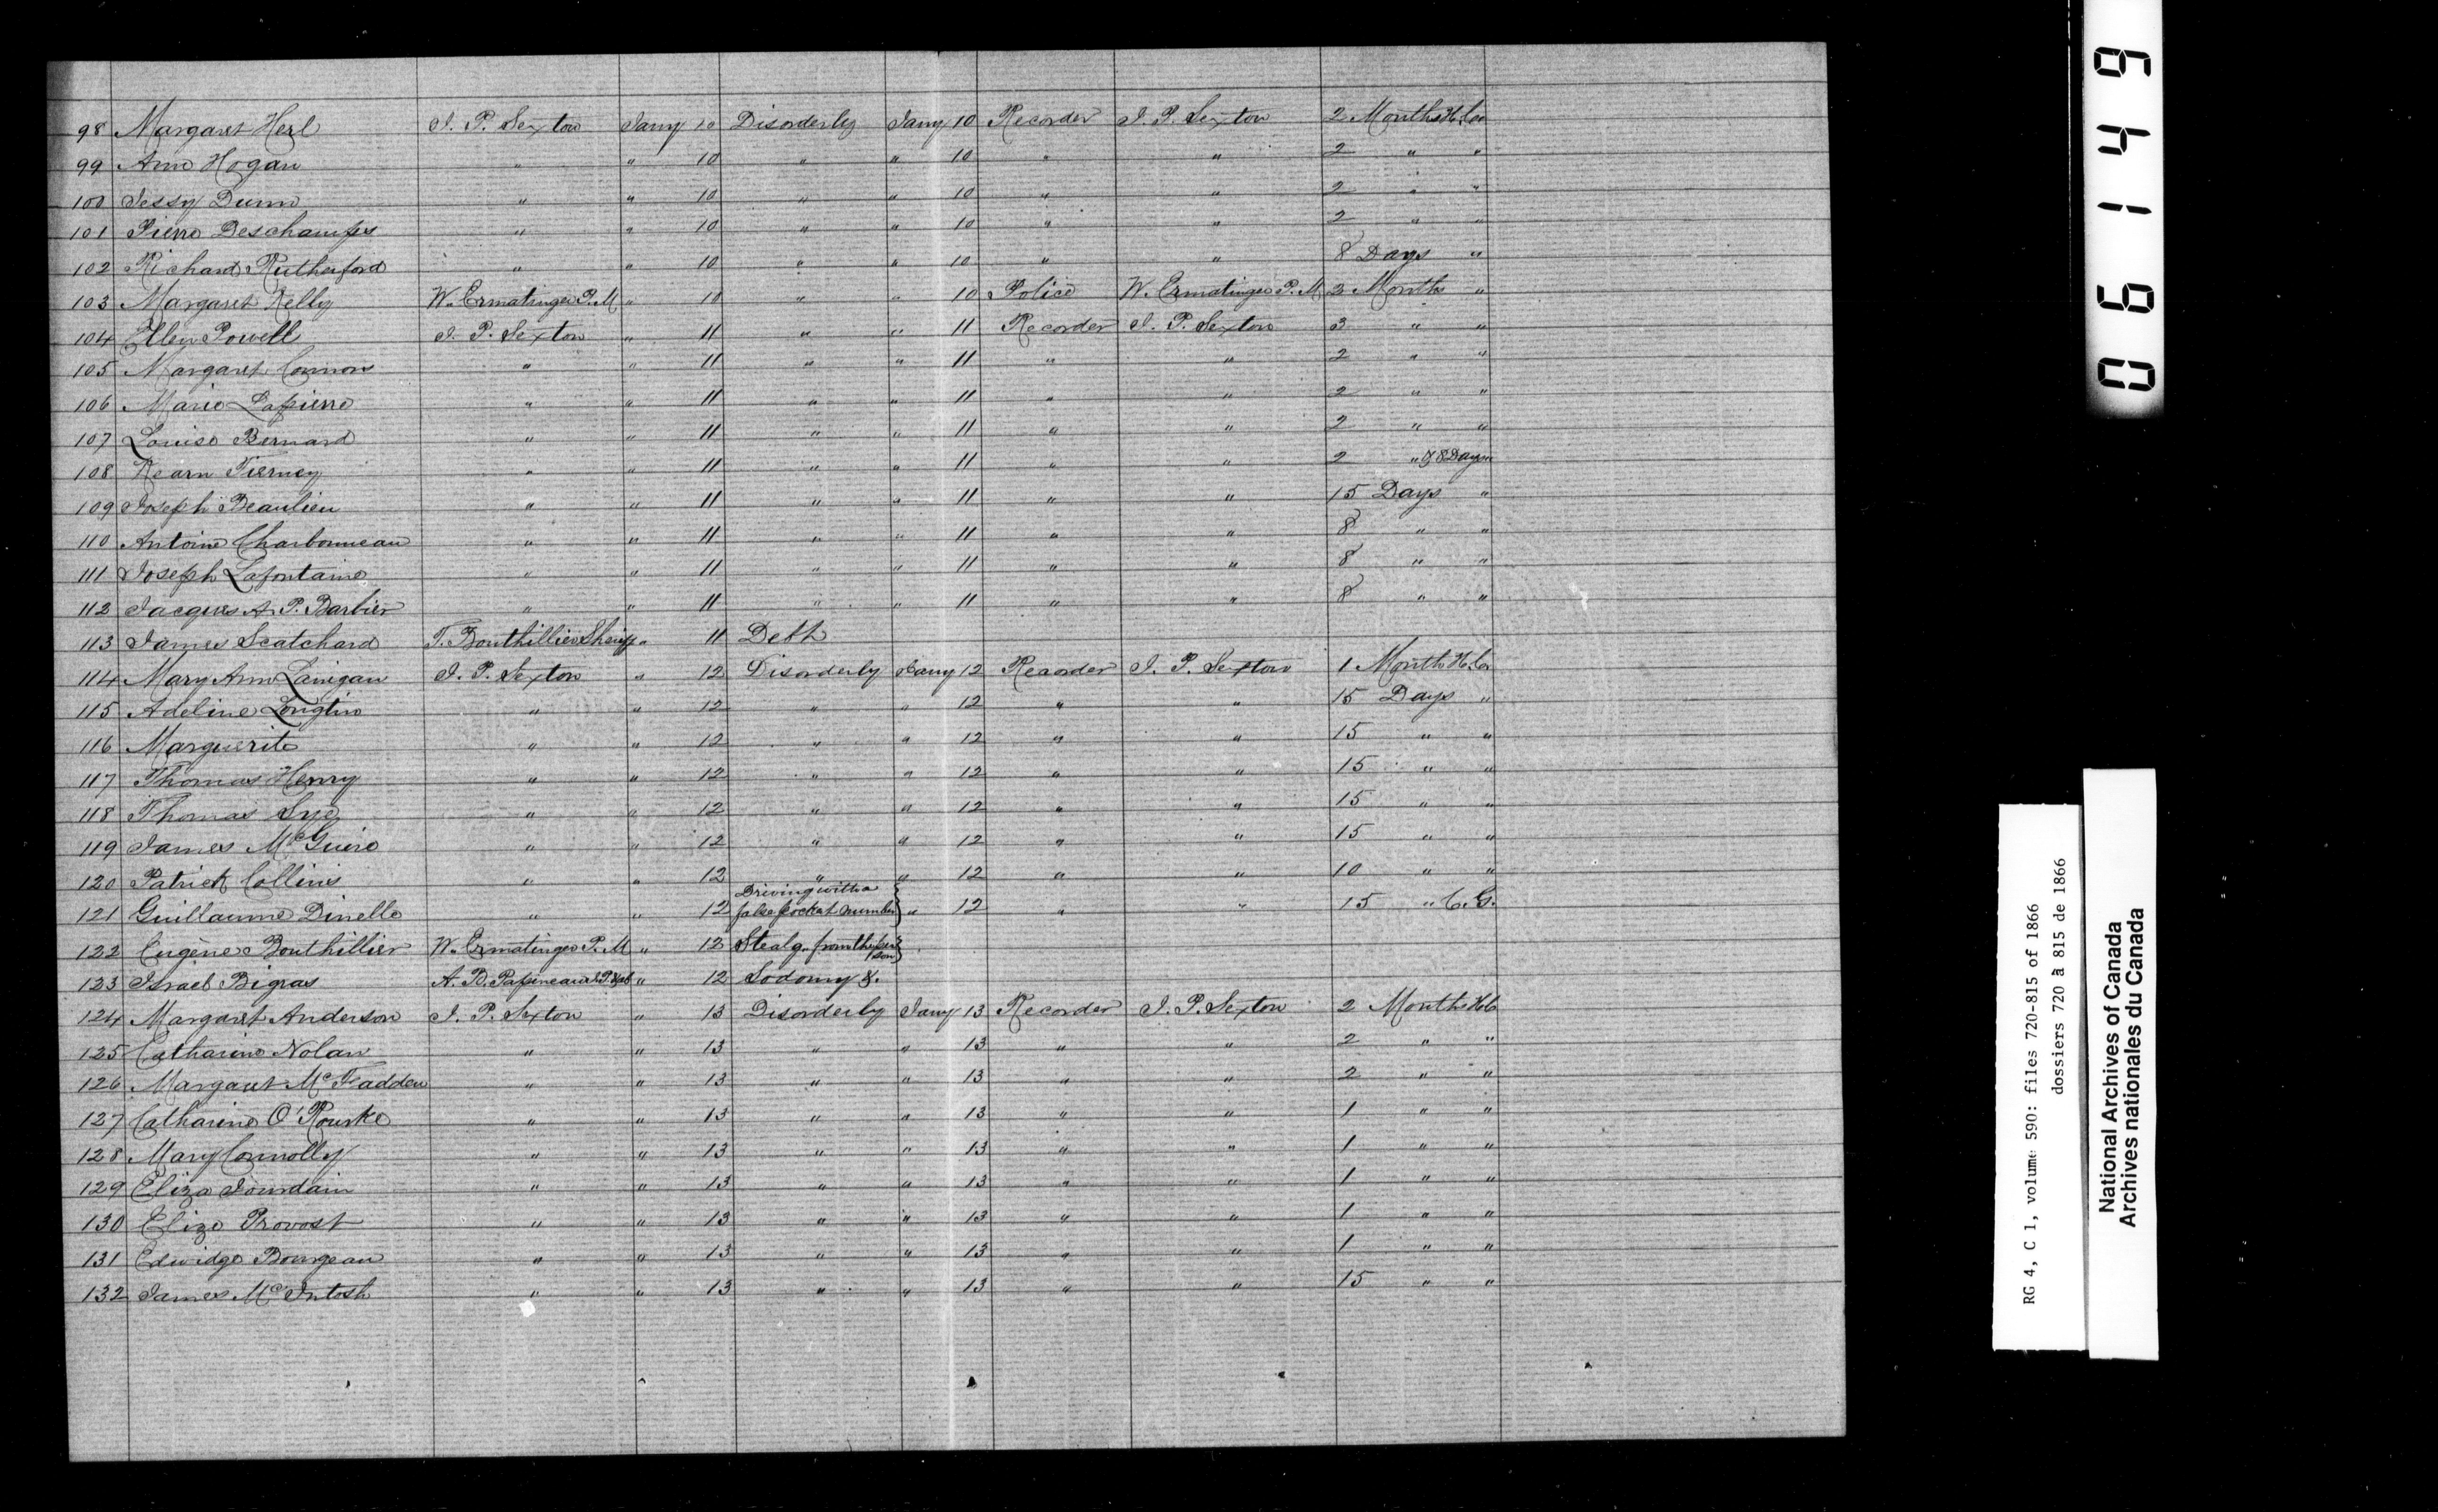 98 Margaret Herl J. P. Sexton Jany 10 Disorderly Jany 10 Recorder J. P. Sexton 2 Months H. La
99 Ann Hogan " " 10 " " 10 " " 2 " "
100 Jessy Dunn " " 10 " " 10 " " 2 " "
101 Pierre Deschamps " " 10 " " 10 " " 2 " "
102 Richard Rutherford " " 10 " " 10 " " 8 Days "
103 Margaret Kelly W. Ermatinger P. M " 10 " " 10 Police W. Ermatinger P. M 3 Months "
104 Ellen Powell J. P. Sexton " 11 " " 11 Recorder J. P. Sexton 3 " "
105 Margaret Connors " " 11 " " 11 " " 2 " "
106 Marie Lapierre " " 11 " " 11 " " 2 " "
107 Louise Bernard " " 11 " " 11 " " 2 " "
108 Kearn Tierney " " 11 " " 11 " " 2 " & 8 Days "
109 Joseph Beaulieu " " 11 " " 11 " " 15 Days "
110 Antoine Charbonneau " " 11 " " 11 " " 8 " "
111 Joseph Lafontaine " " 11 " " 11 " " 8 " "
112 Jacques A. P. Barbier " " 11 " " 11 " " 8 " "
113 James Scatchard T. Bouthillier Sheriff " 11 Debt
114 Mary Ann Lanigan J. P. Sexton " 12 Disorderly Jany 12 Recorder J. P. Sexton 1 Month H. La
115 Adeline Longtin " " 12 " " 12 " " 15 Days "
116 Marguerite " " 12 " " 12 " " 15 " "
117 Thomas Henry " " 12 " " 12 " " 15 " "
118 Thomas Sye " " 12 " " 12 " " 15 " "
119 James McGuire " " 12 " " 12 " " 15 " "
120 Patrick Collins " " 12 " " 12 " " 10 " "
121 Guillaume Dinelle " " 12 Driving with a false pocket number " 12 " " 15 " C. G.
122 Eugène Bouthillier W. Ermatinger P. M " 12 Stealg. from the person
123 Israel Bigras A. B. Papineau J. P. " 12 Sodomy &.
124 Margaret Anderson J. P. Sexton " 13 Disorderly Jany 13 Recorder J. P. Sexton 2 Months H. L
125 Catharine Nolan " " 13 " " 13 " " 2 " "
126 Margaret McFadden " " 13 " " 13 " " 2 " "
127 Catharine O'Rourke " " 13 " " 13 " " 1 " "
128 Mary Connolly " " 13 " " 13 " " 1 " "
129 Eliza Jourdain " " 13 " " 13 " " 1 " "
130 Eliza Provost " " 13 " " 13 " " 1 " "
131 Edwidge Bourgeau " " 13 " " 13 " " 1 " "
132 James McIntosh " " 13 " " 13 " " 15 " "
061449
RG 4, C 1, volume 590: files 720-815 of 1866
dossiers 720 à 815 de 1866
National Archives of Canada
Archives nationales du Canada